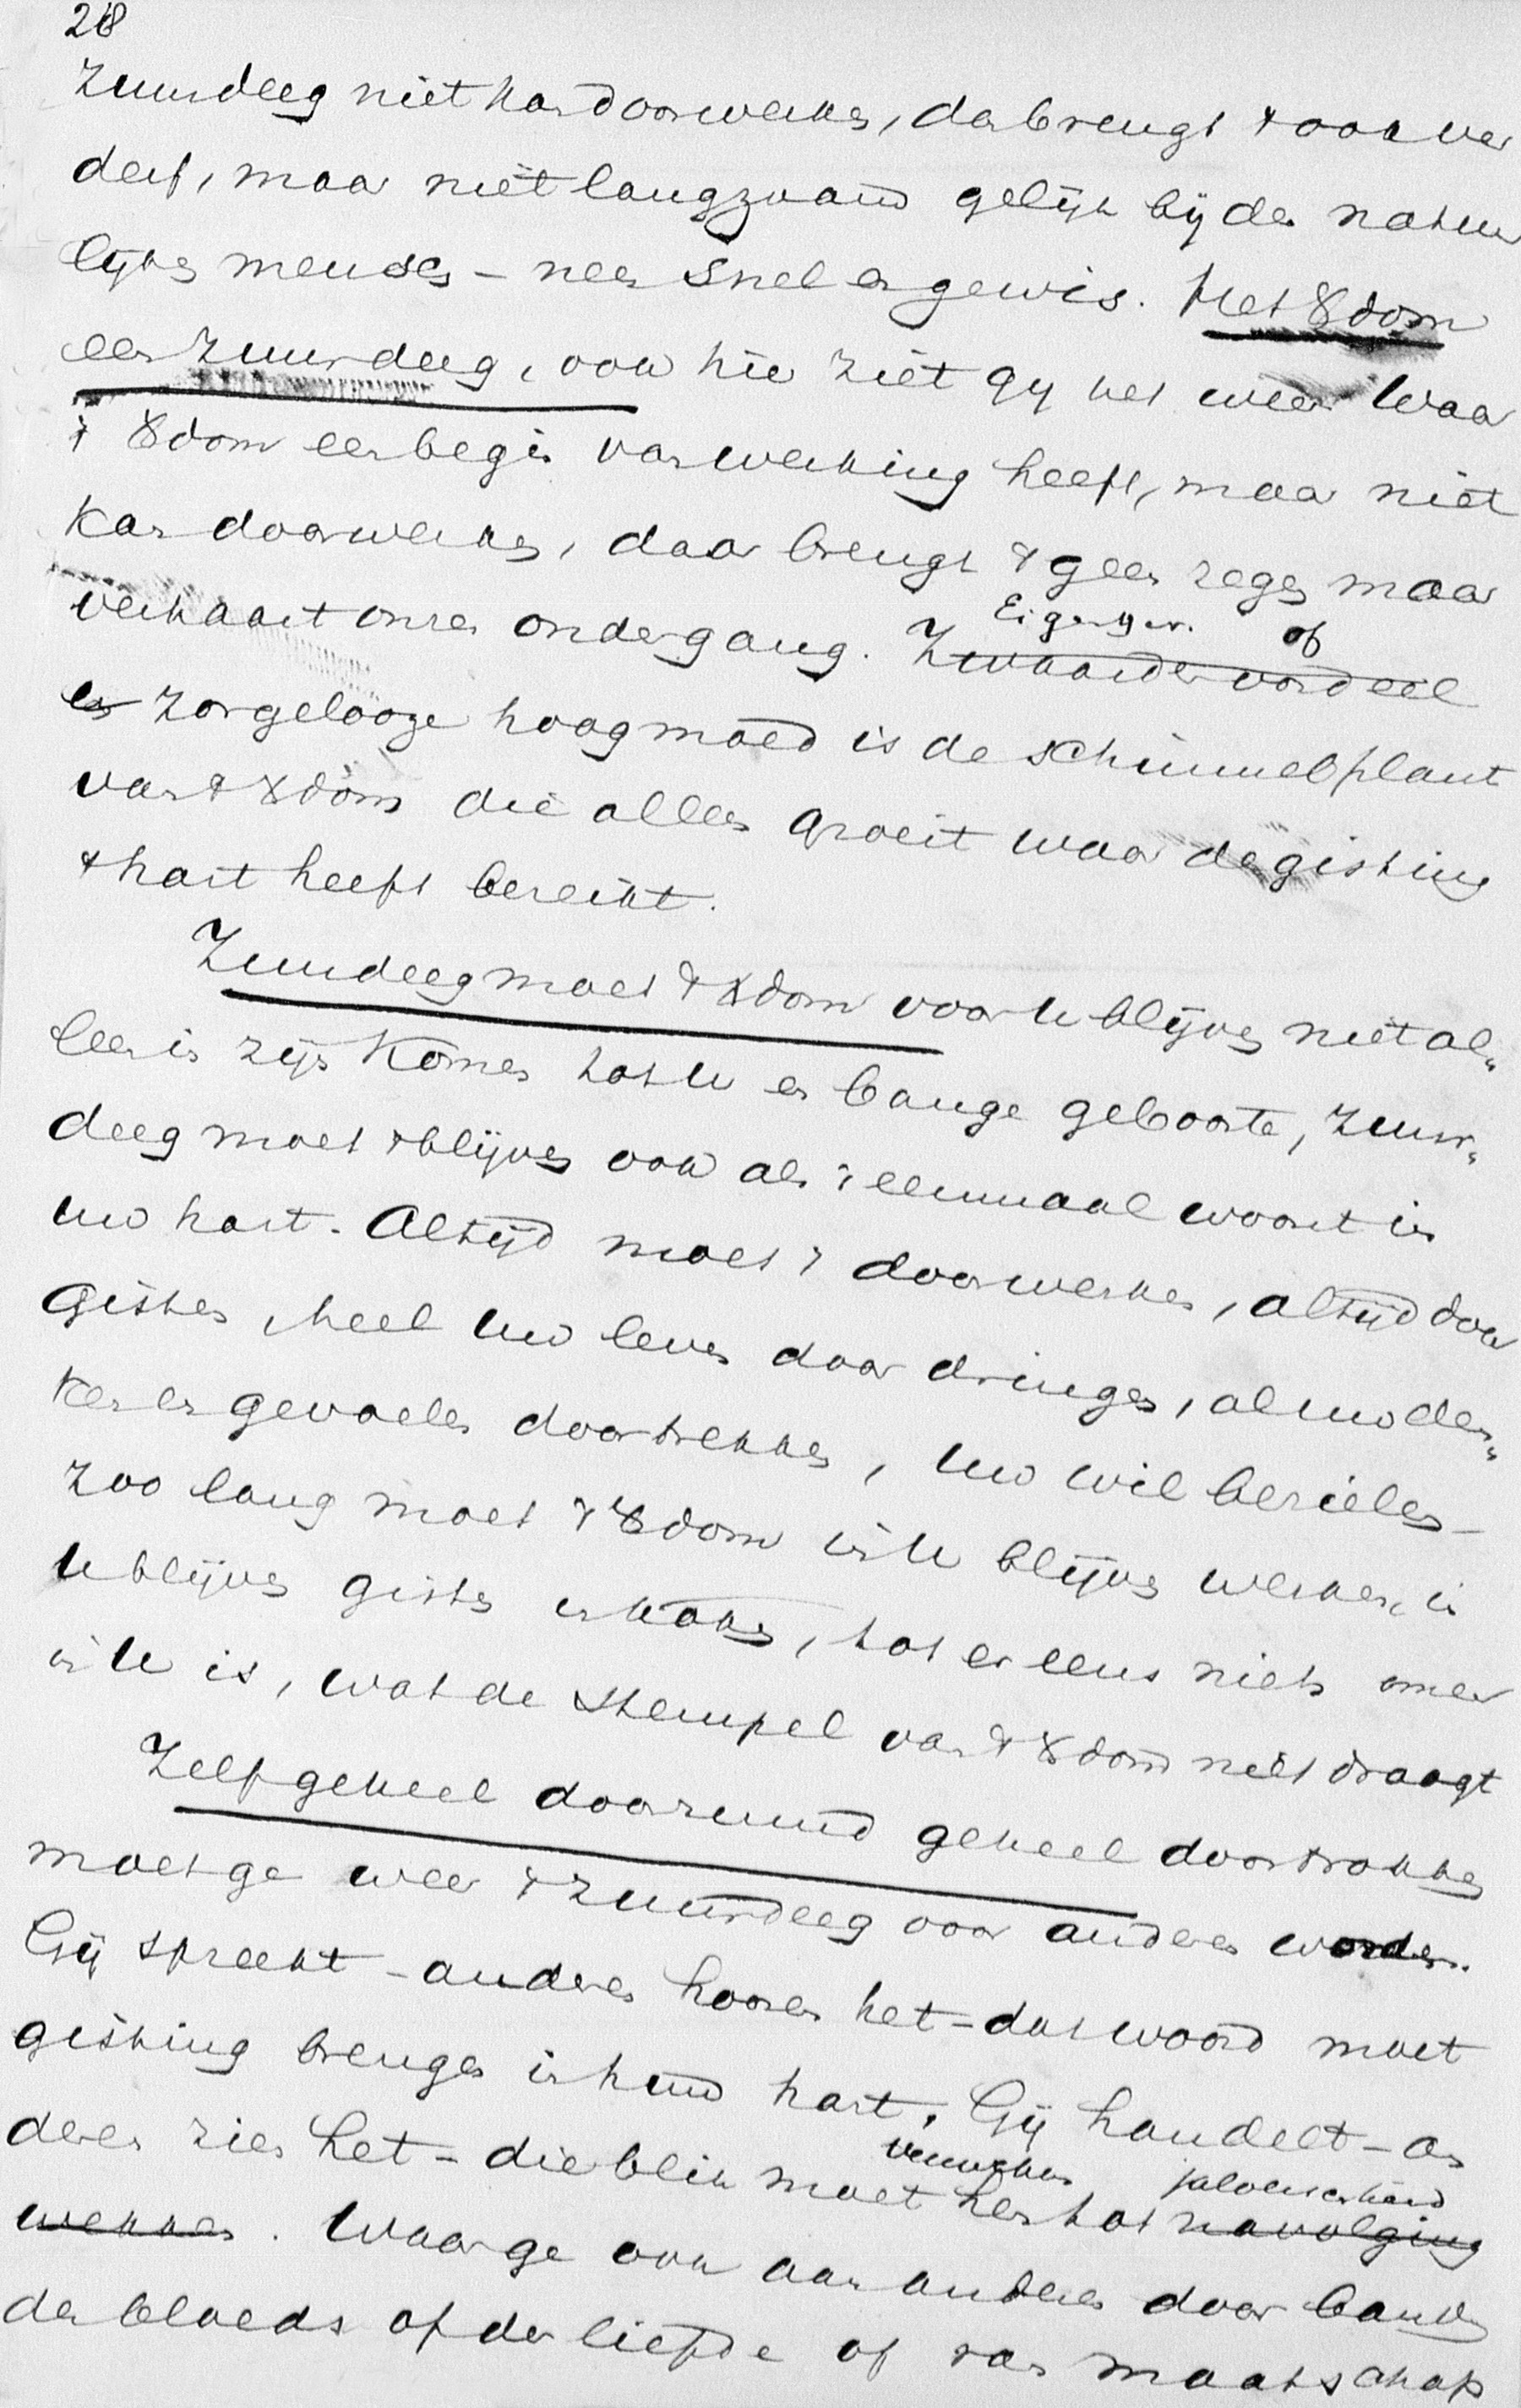 28
Zuurdeeg niet kan doorwerken, dan brengt 't ook ver
derf, maar niet langzaam gelijk bij den natuur
lijken mensch - neen snel en gewis. Het Xdom
een zuurdeeg, ook hier ziet gij het weer waar
't Xdom een begin van werking heeft, maar niet
kan doorwerken, daar brengt 't geen zegen maar
verhaast onzen ondergang. Zwaarder oordeel
Eigenger. of
en zorgelooze hoogmoed is de schimmelplant
van 't Xdom die alleen groeit waar de gisting
't hart heeft bereikt.
Zuurdeeg moet 't Xdom voor u blijven niet al„
leen in zijn komen tot u en bange geboorte, zuur„
deeg moet 't blijven ook als 't eenmaal woont in
uw hart. Altijd moet 't doorwerken, altijd door
gisten, heel uw leven doordringen, al uw den„
ken en gevoelen doortrekken, uw wil bezielen -
zoo lang moet 't Xdom in u blijven werken, in
u blijven gisten en koken, tot er eens niets meer
in u is, wat de stempel van 't Xdom niet draagt
Zelf geheel doorzuurd geheel doortrokken
moet ge weer 't zuurdeeg voor anderen worden.
Gij spreekt - anderen hooren het - dat woord moet
gisting brengen in hun hart. Gij handelt - an
deren zien het - die blik moet hen tot navolging
wekken. Waar ge ook aan anderen door banden
des bloeds of der liefde of van maatschap